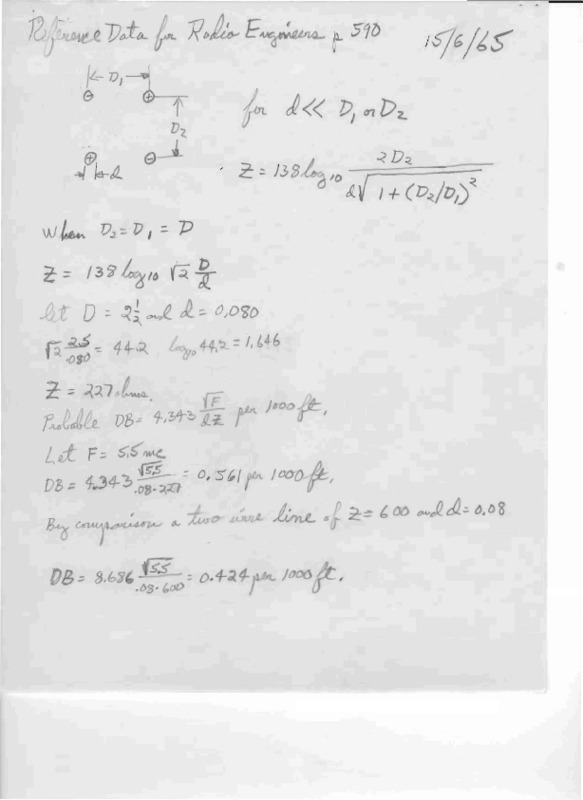 Reference Data for Radio Engineers p 590
15/6/65
D₁
⊖ ⊕
D₂
⊕ ⊖
d
for d << D₁ or D₂
Z = 138 log₁₀ 2D₂ / d√(1 + (D₂/D₁)²)
when D₂ = D₁ = D
Z = 138 log₁₀ √2 D/d
let D = 2½ and d = 0,080
√2 2.5/.080 = 44.2 log₁₀ 44,2 = 1,646
Z = 227 ohms.
Probable DB = 4,343 √F/dZ per 1000 ft,
Let F = 5,5 mc
DB = 4.343 √5.5/.08·227 = 0.561 per 1000 ft,
By comparison a two wire line of Z = 600 and d = 0.08
DB = 8.686 √5.5/.08·600 = 0.424 per 1000 ft.